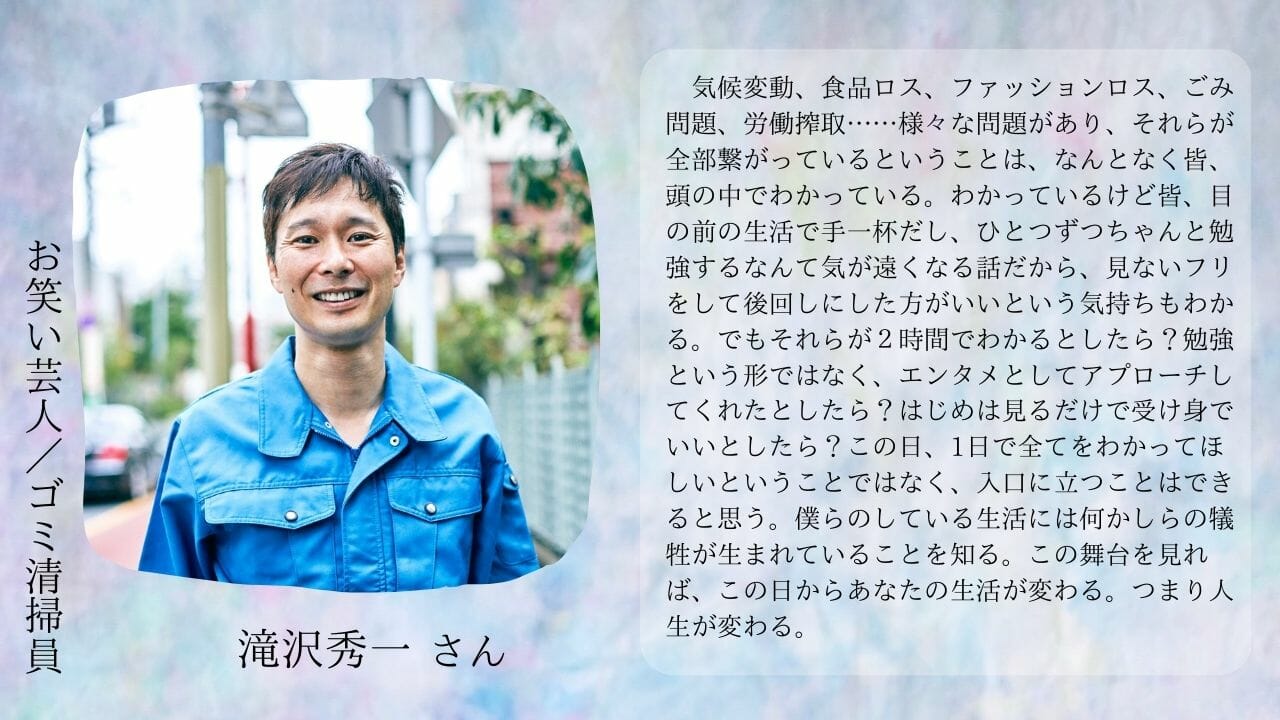 お笑い芸人／ゴミ清掃員
滝沢秀一 さん
気候変動、食品ロス、ファッションロス、ごみ
問題、労働搾取……様々な問題があり、それらが
全部繋がっているということは、なんとなく皆、
頭の中でわかっている。わかっているけど皆、目
の前の生活で手一杯だし、ひとつずつちゃんと勉
強するなんて気が遠くなる話だから、見ないフリ
をして後回しにした方がいいという気持ちもわか
る。でもそれらが２時間でわかるとしたら？勉強
という形ではなく、エンタメとしてアプローチし
てくれたとしたら？はじめは見るだけで受け身で
いいとしたら？この日、1日で全てをわかってほ
しいということではなく、入口に立つことはでき
ると思う。僕らのしている生活には何かしらの犠
牲が生まれていることを知る。この舞台を見れ
ば、この日からあなたの生活が変わる。つまり人
生が変わる。